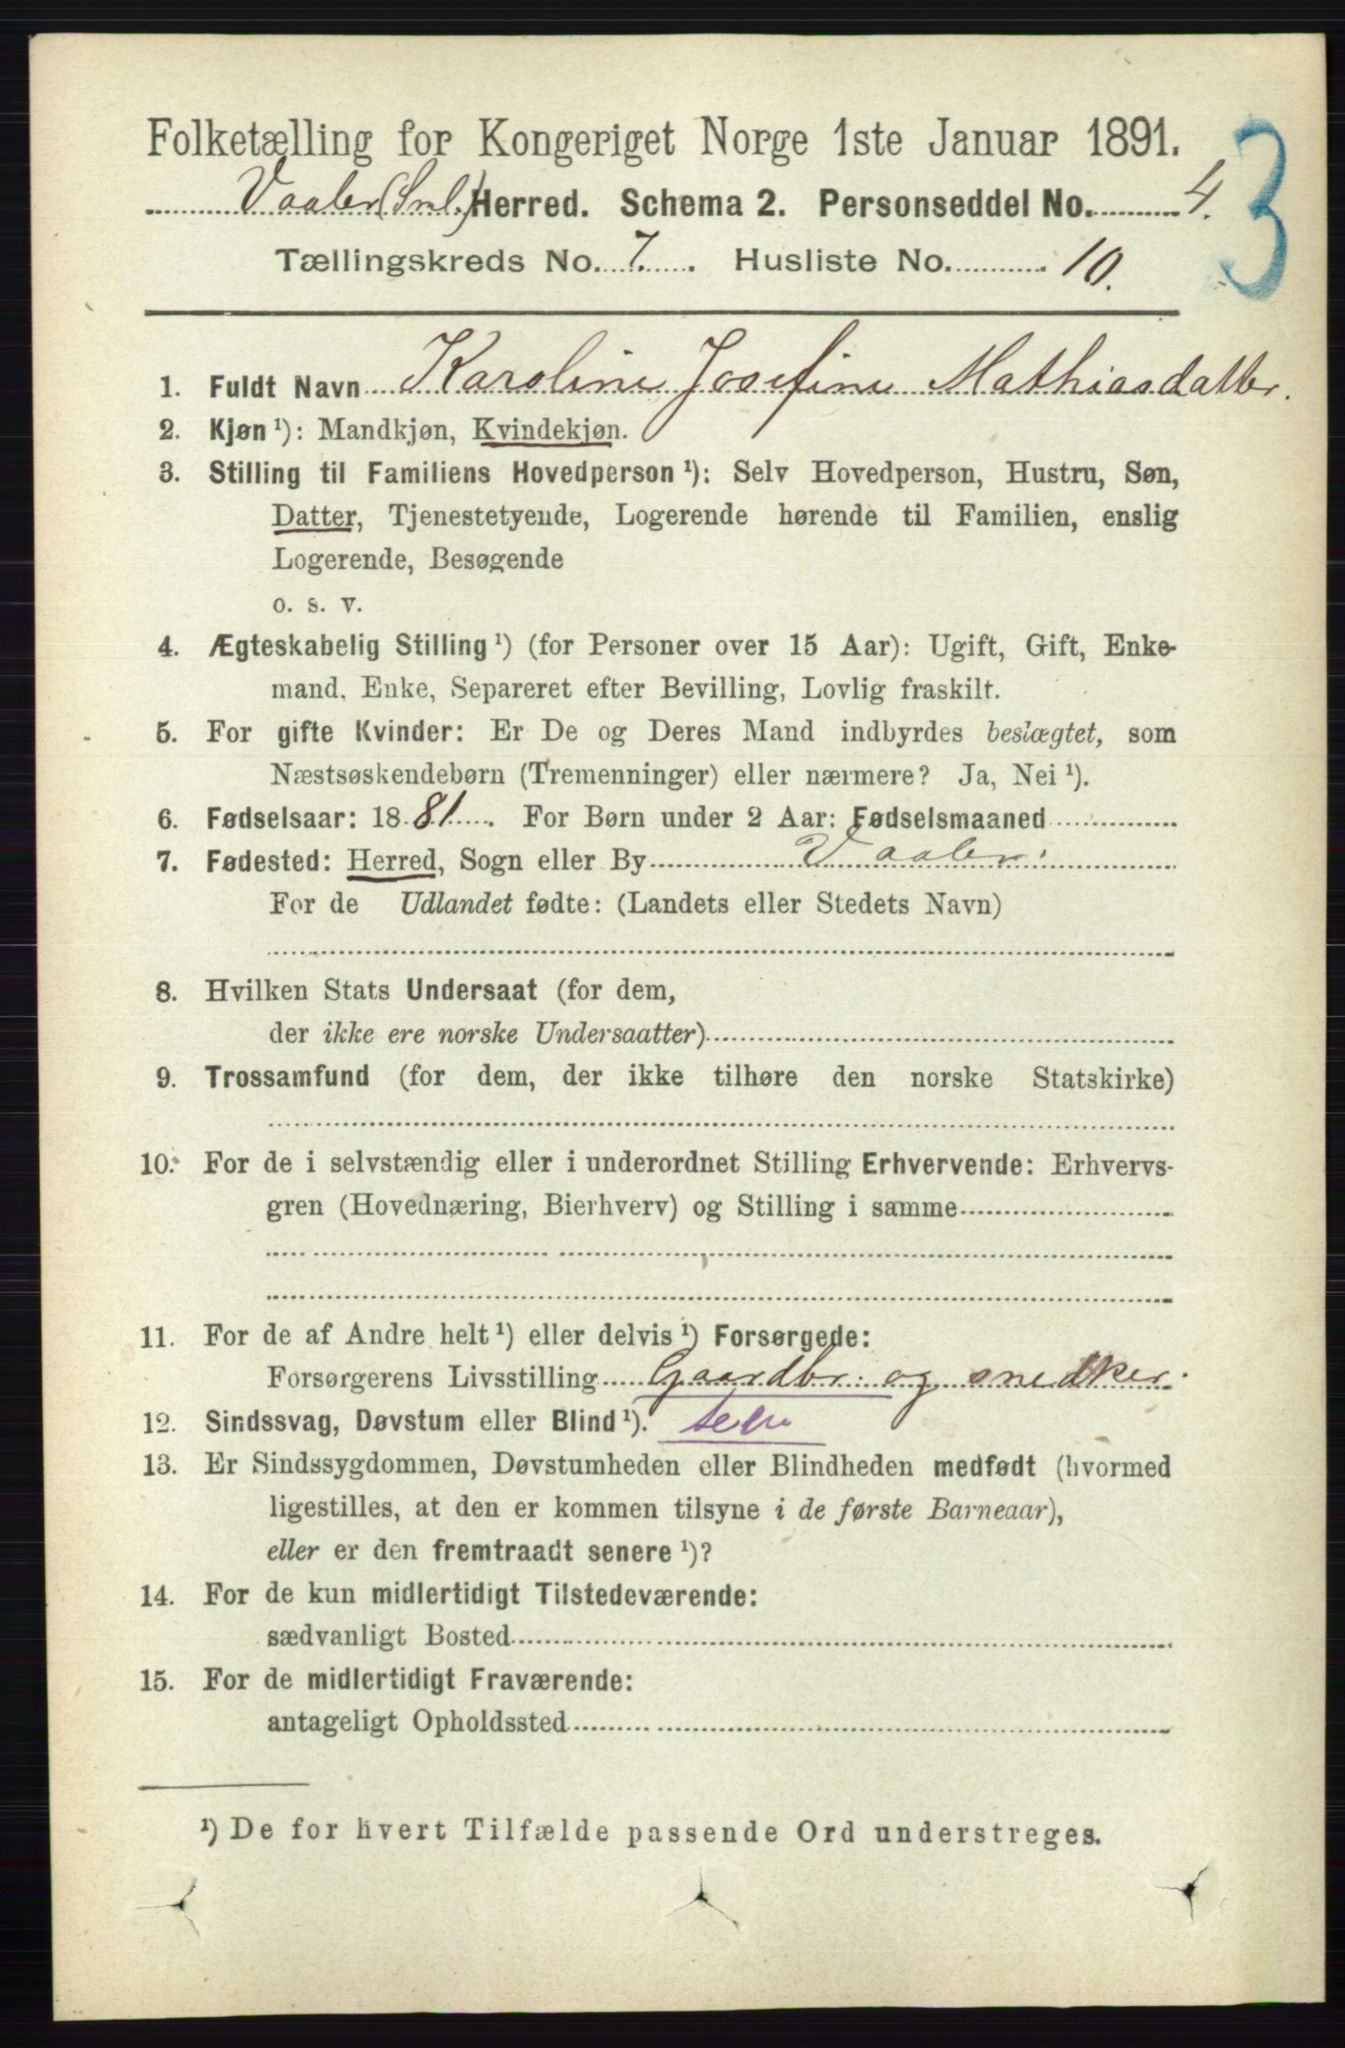 Folketælling for Kongeriget Norge 1ste Januar 1891.
3
Vaaler (Sml.) Herred. Schema 2. Personseddel No. 4.
Tællingskreds No. 7. Husliste No. 10.
1. Fuldt Navn Karoline Josefine Mathiasdatter.
2. Kjøn ¹): Mandkjøn, Kvindekjøn.
3. Stilling til Familiens Hovedperson ¹): Selv Hovedperson, Hustru, Søn,
Datter, Tjenestetyende, Logerende hørende til Familien, enslig
Logerende, Besøgende
o. s. v.
4. Ægteskabelig Stilling ¹) (for Personer over 15 Aar): Ugift, Gift, Enke-
mand, Enke, Separeret efter Bevilling, Lovlig fraskilt.
5. For gifte Kvinder: Er De og Deres Mand indbyrdes beslægtet, som
Næstsøskendebørn (Tremenninger) eller nærmere? Ja, Nei ¹).
6. Fødselsaar: 1881. For Børn under 2 Aar: Fødselsmaaned
7. Fødested: Herred, Sogn eller By Vaaler.
For de Udlandet fødte: (Landets eller Stedets Navn)
8. Hvilken Stats Undersaat (for dem,
der ikke ere norske Undersaatter)
9. Trossamfund (for dem, der ikke tilhøre den norske Statskirke)
10. For de i selvstændig eller i underordnet Stilling Erhvervende: Erhvervs-
gren (Hovednæring, Bierhverv) og Stilling i samme
11. For de af Andre helt ¹) eller delvis ¹) Forsørgede:
Forsørgerens Livsstilling Gaardbr. og snedker.
12. Sindssvag, Døvstum eller Blind ¹).
13. Er Sindssygdommen, Døvstumheden eller Blindheden medfødt (hvormed
ligestilles, at den er kommen tilsyne i de første Barneaar),
eller er den fremtraadt senere ¹)?
14. For de kun midlertidigt Tilstedeværende:
sædvanligt Bosted
15. For de midlertidigt Fraværende:
antageligt Opholdssted
¹) De for hvert Tilfælde passende Ord understreges.